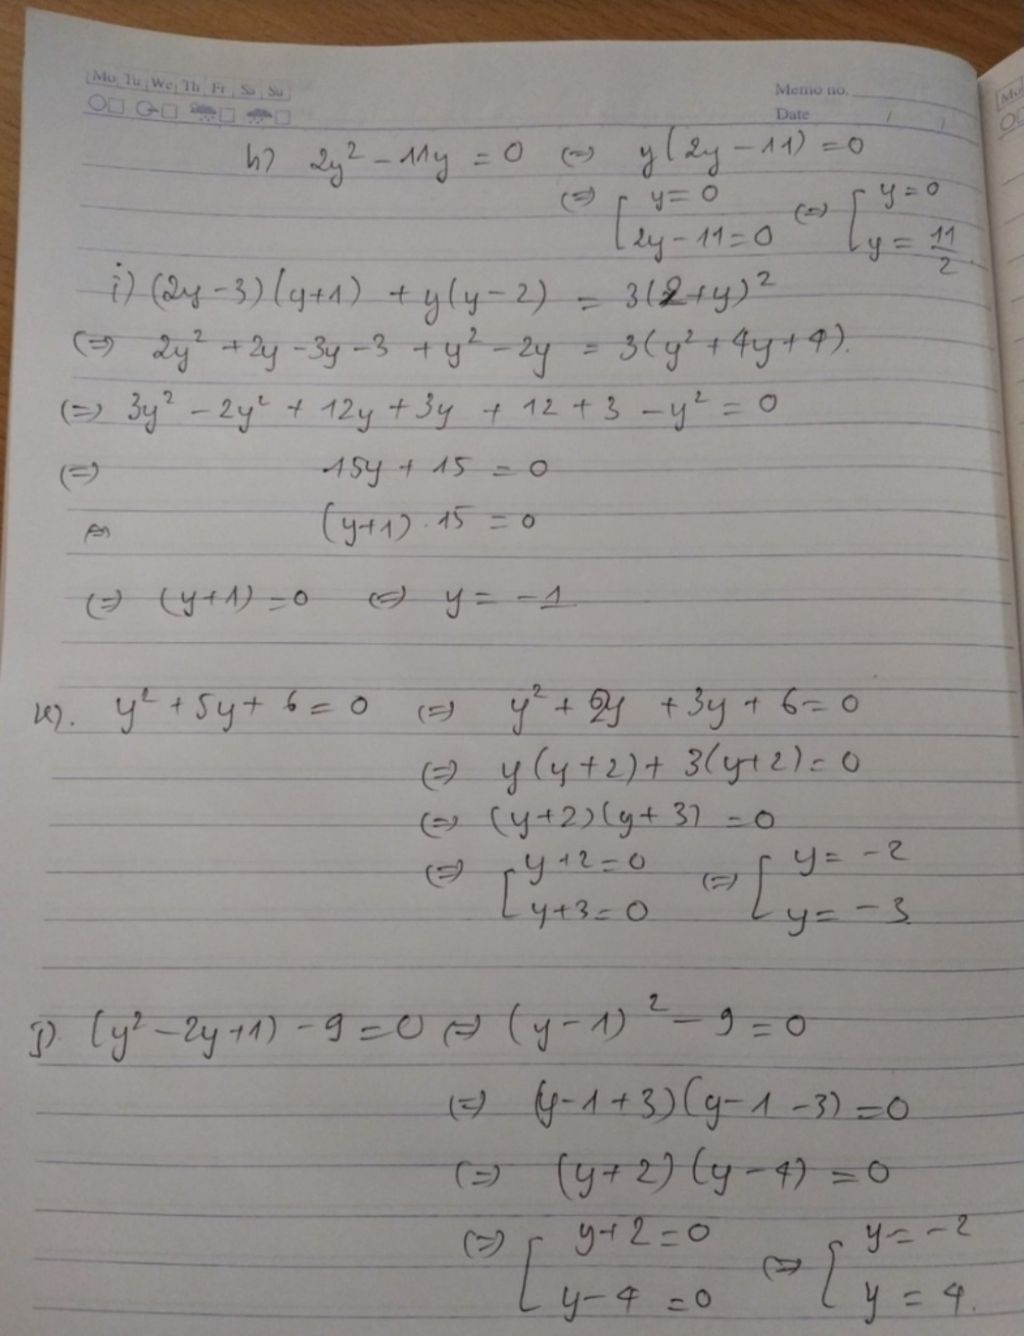 Mo Tu We Th Fr Sa Su
Memo no.
Date / /
h) 2y² - 11y = 0 (=) y(2y - 11) = 0
(=) [ y = 0 (=) [ y = 0
2y - 11 = 0 y = 11/2
i) (2y - 3)(y+1) + y(y - 2) = 3(2+y)²
(=) 2y² + 2y - 3y - 3 + y² - 2y = 3(y² + 4y + 4).
(=) 3y² - 2y² + 12y + 3y + 12 + 3 - y² = 0
(=) 15y + 15 = 0
(=) (y+1) . 15 = 0
(=) (y+1) = 0 (=) y = -1
k). y² + 5y + 6 = 0 (=) y² + 2y + 3y + 6 = 0
(=) y(y+2) + 3(y+2) = 0
(=) (y+2)(y+3) = 0
(=) [ y+2 = 0 (=) [ y = -2
y+3 = 0 y = -3
j) (y² - 2y+1) - 9 = 0 (=) (y - 1)² - 9 = 0
(=) (y-1+3)(y-1-3) = 0
(=) (y+2)(y-4) = 0
(=) [ y+2 = 0 (=) [ y = -2
y-4 = 0 y = 4.